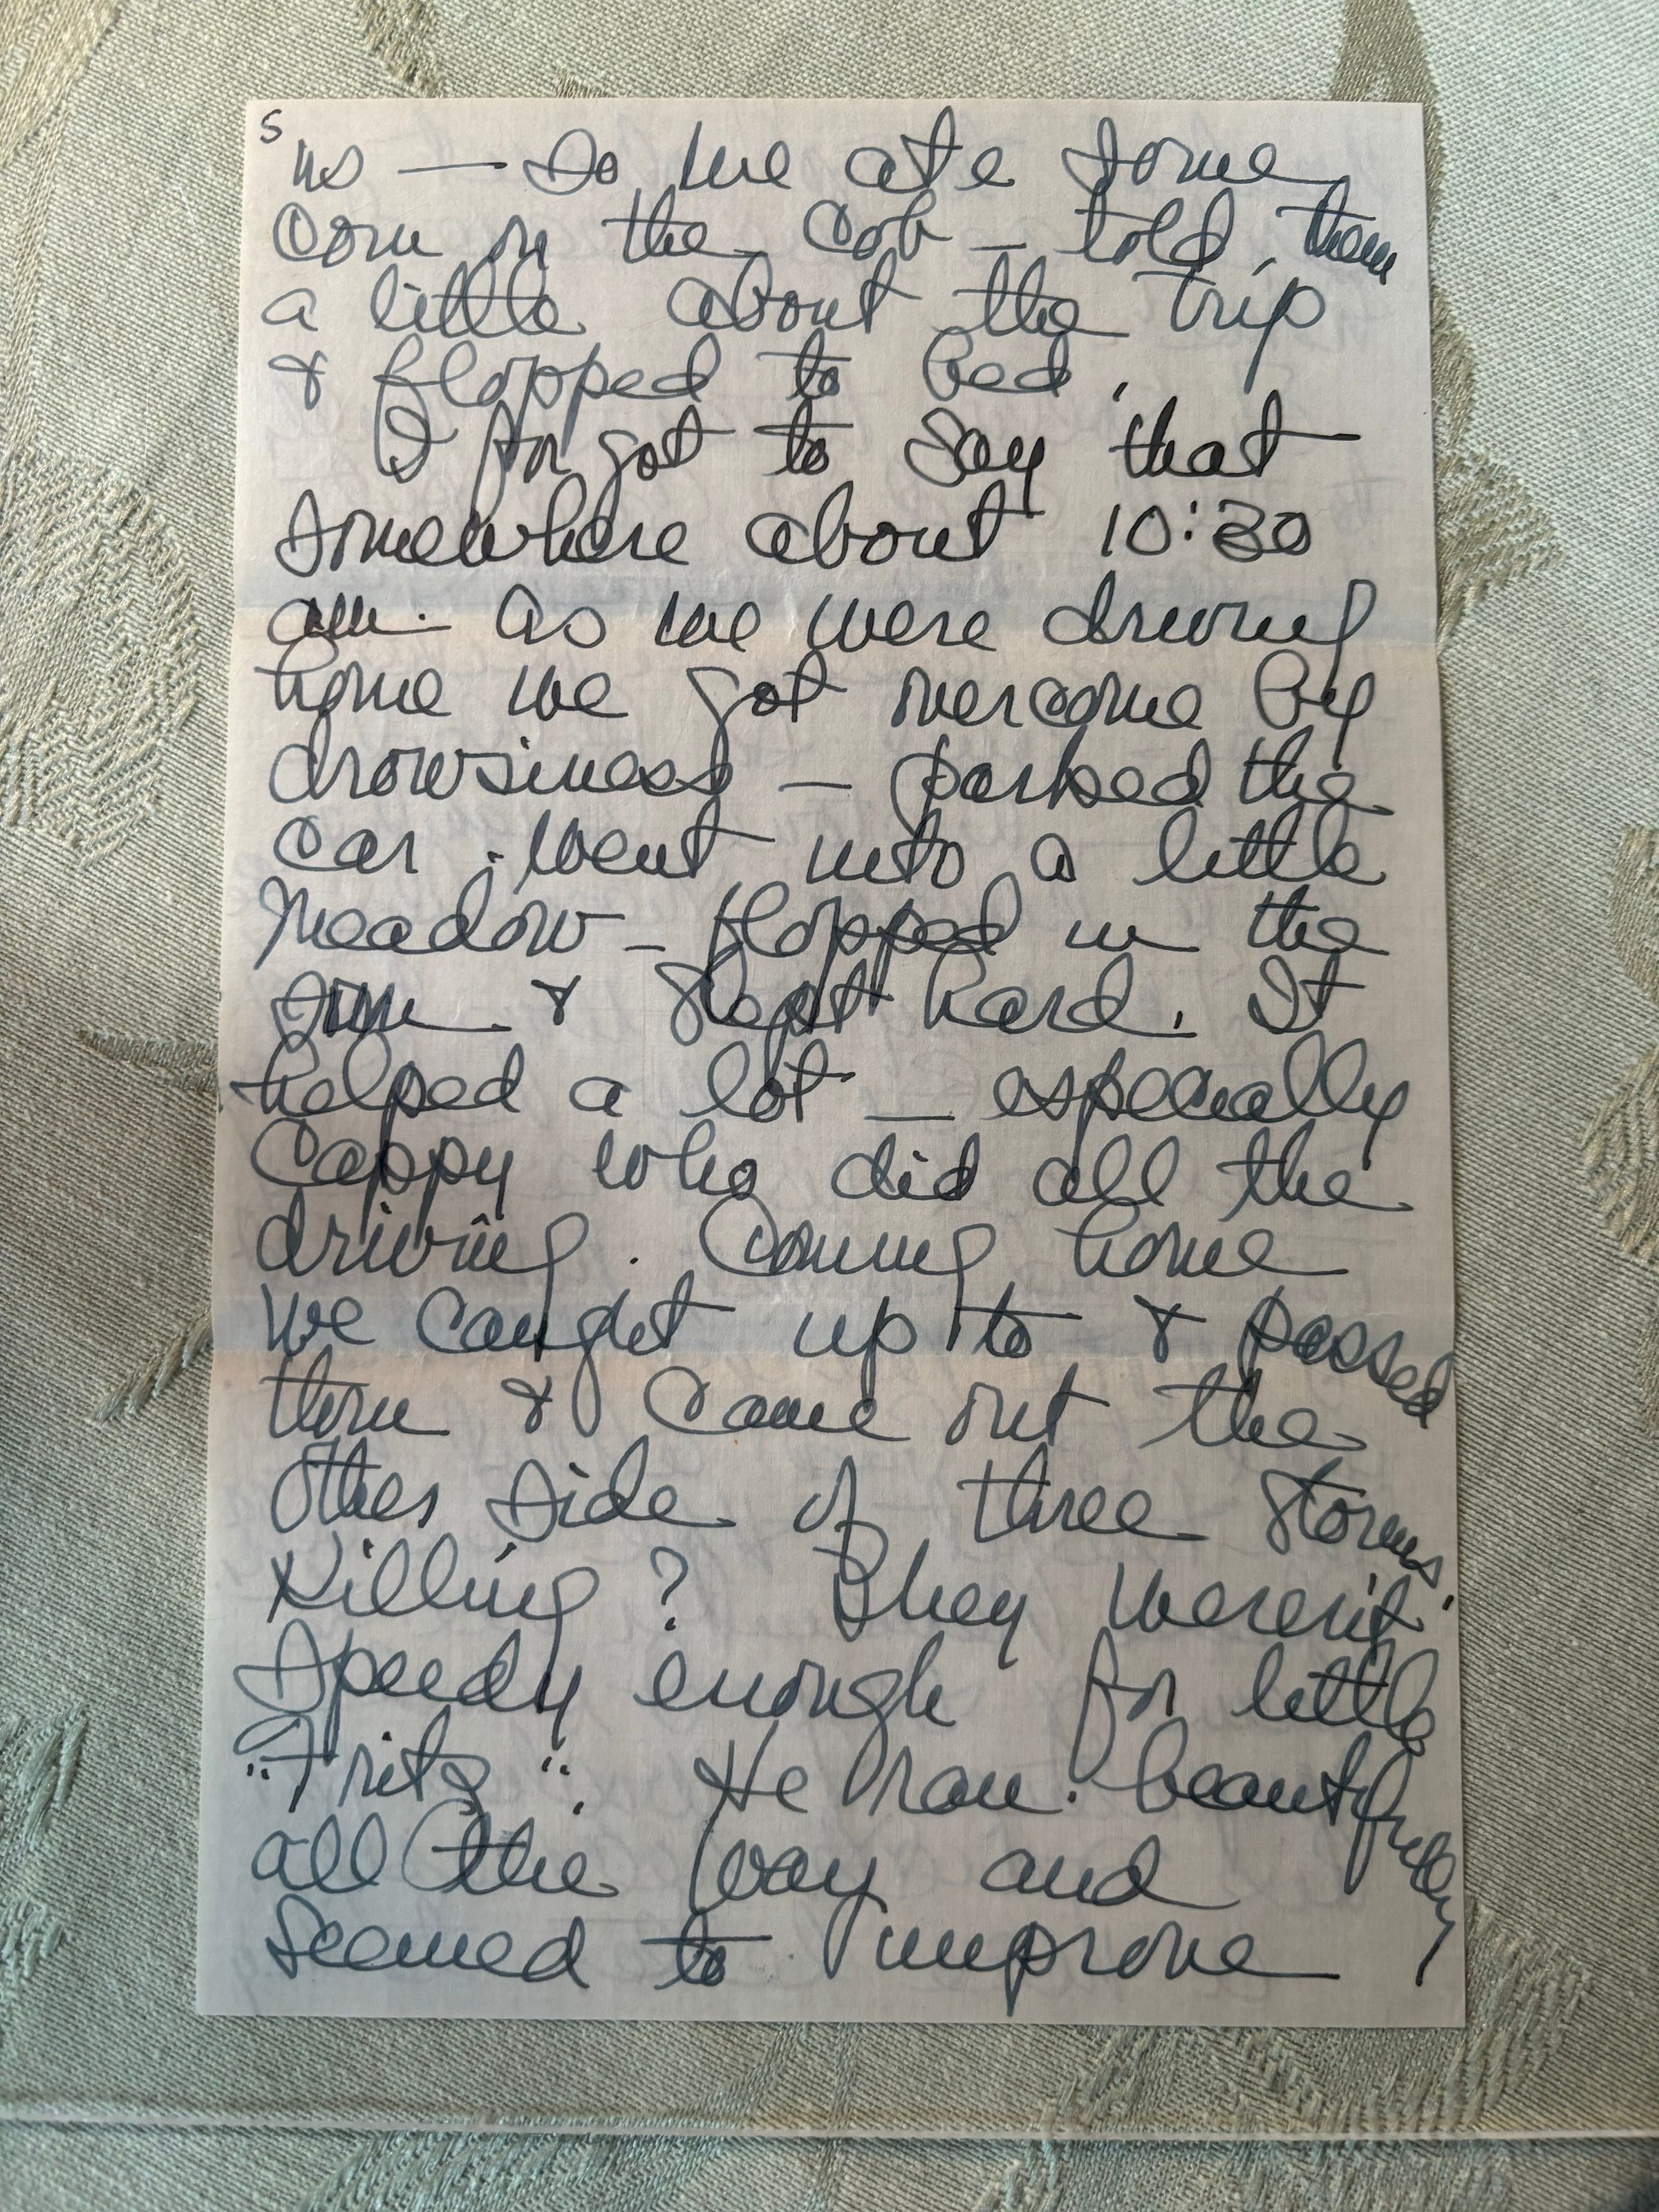 5
us — So we ate some
corn on the cob — told them
a little about the trip
& flopped to bed.
I forgot to say that
somewhere about 10:30
am. as we were driving
home we got overcome by
drowsiness — parked the
car. went into a little
meadow — flopped in the
sun & slept hard. It
helped a lot — especially
Cappy who did all the
driving. Coming home
we caught up to & passed
thru & came out the
other side of three storms.
Killing? They weren't
speedy enough for little
"Fritz". He ran beautifully
all the way and
seemed to improve